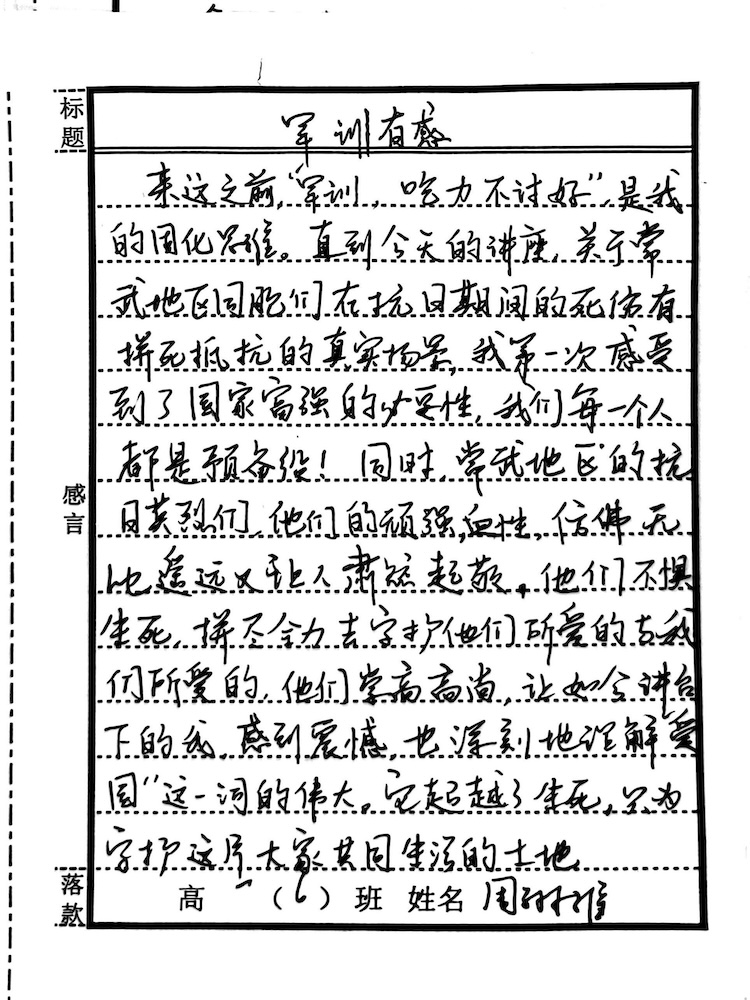 标题
军训有感
来这之前,“军训,吃力不讨好”,是我
的固化思维。直到今天的讲座,关于常
武地区同胞们在抗日期间的死伤有
拼死抵抗的真实场景,我第一次感受
到了国家富强的必要性,我们每一个人
都是预备役!同时,常武地区的抗
日英烈们,他们的顽强,血性,仿佛无
比遥远又让人肃然起敬。他们不惧
生死,拼尽全力去守护他们所爱的与我
们所爱的,他们崇高高尚,让如今讲台
下的我,感到震憾,也深刻地理解爱
国”这一词的伟大。它超越了生死,只为
守护这片大家共同生活的土地
感言
落款
高一(6)班 姓名 周